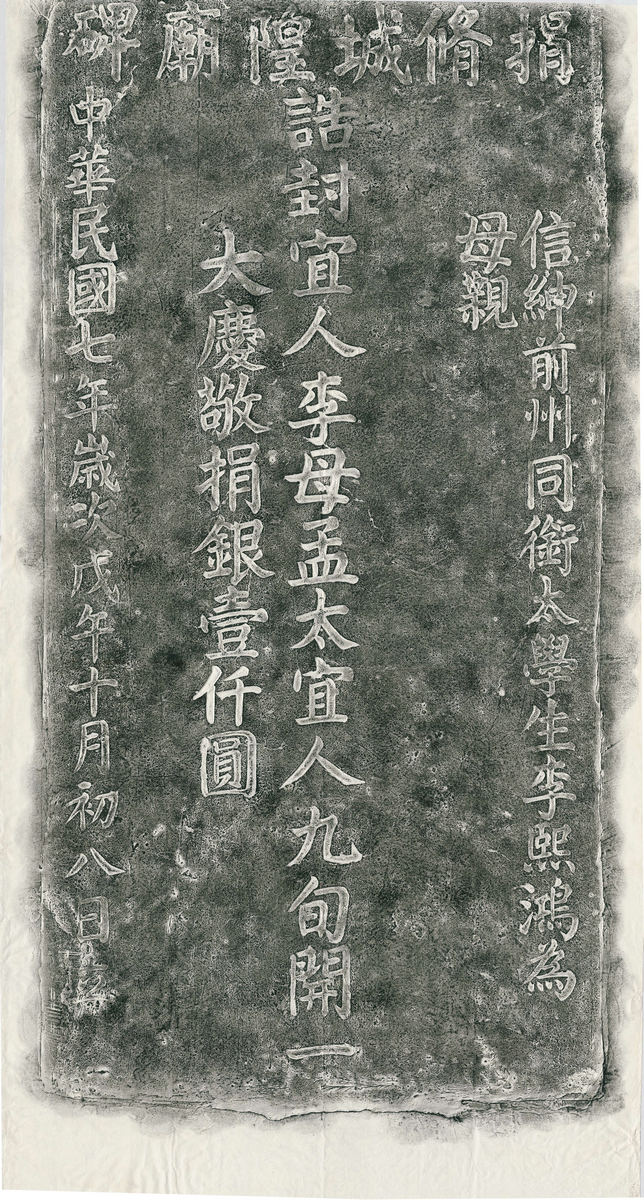 捐脩城隍廟碑
信紳前州同銜太學生李熙鴻為
母親
誥封宜人李母孟太宜人九旬開一
大慶敬捐銀壹仟圓
中華民國七年歲次戊午十月初八日